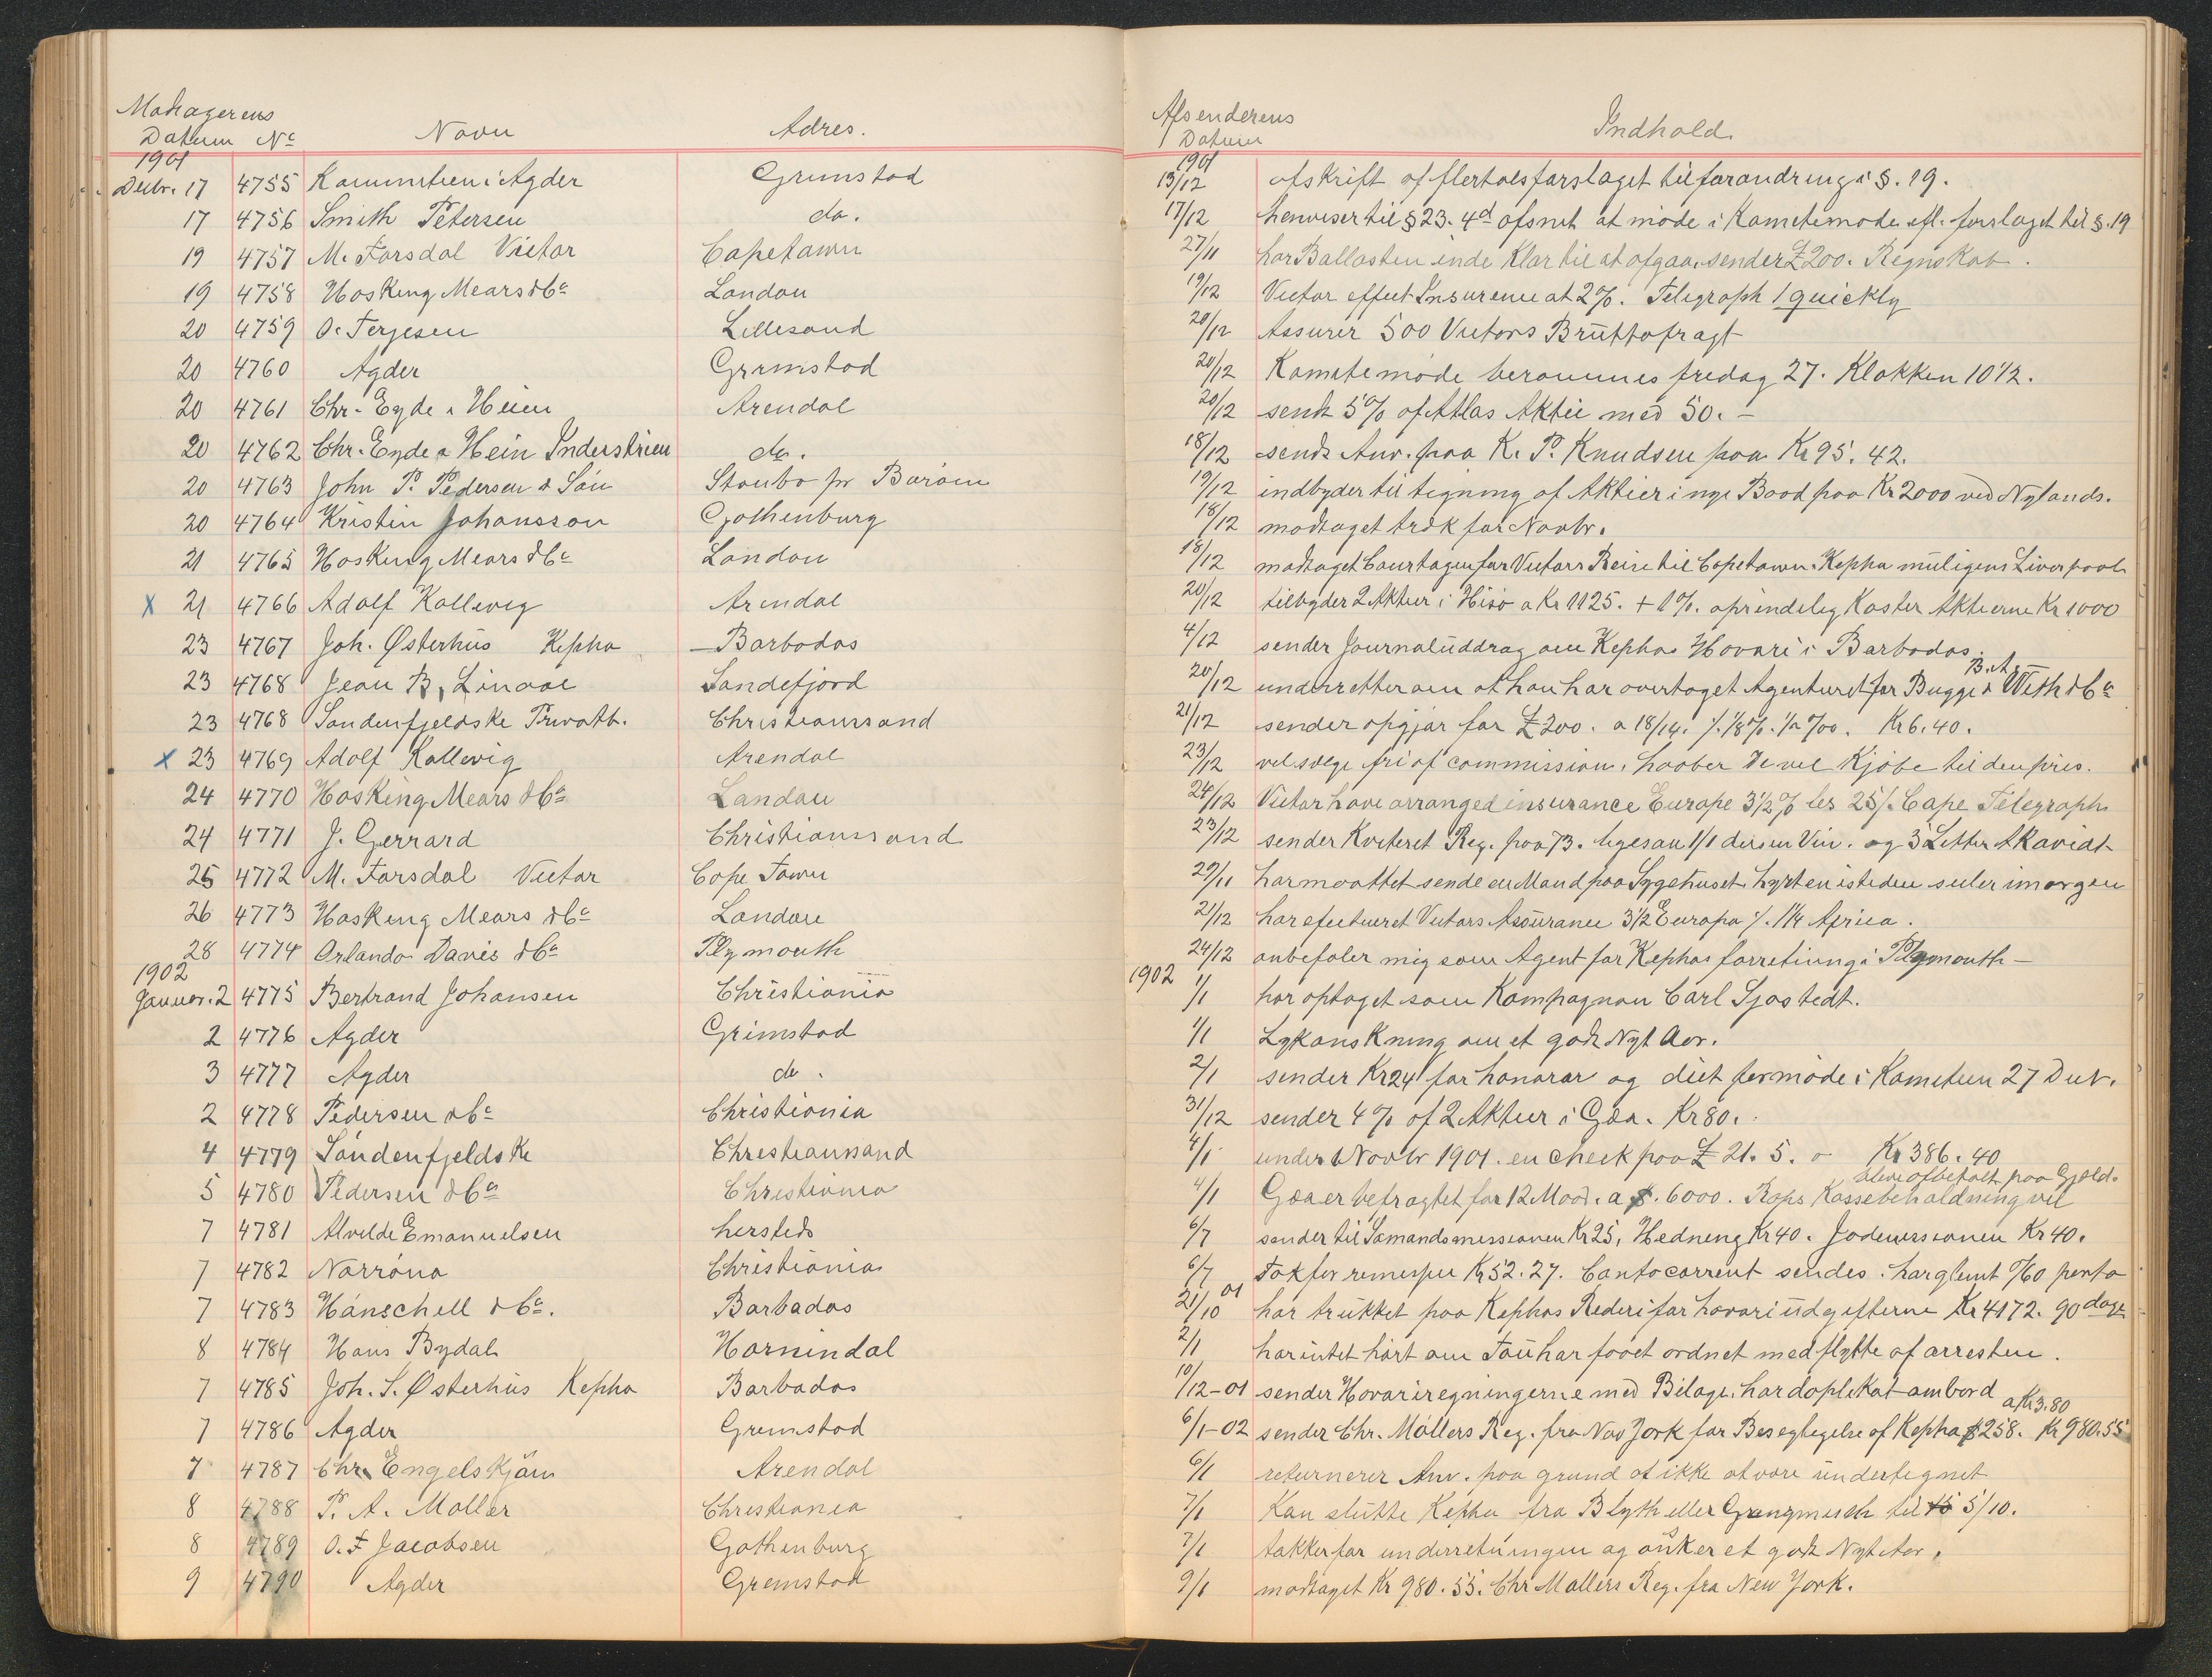 Modtagerens Afsenderens
Datum No Navn Adres. Datum Indhold.
1901 1901
Decbr. 17 4755 Kommitteen i Agder Grimstad 13/12 afskrift af flertalsforslaget til forandring i §. 19.
17 4756 Smith Petersen do. 17/12 henviser til § 23. 4d afsnit at møde i Kometemøde efl. forslaget til §. 19
19 4757 M. Forsdal Victor Capetown 27/11 har Ballasten inde klar til at afgaa, sender £ 200. Regnskab.
19 4758 Hosking Mears & Co London 19/12 Victor effect Insurence at 2%. Telegraph / quickly
20 4759 O. Terjesen Lillesand 20/12 Assurer 500 Victors Bruttofragt
20 4760 Agder Grimstad 20/12 Komitemøde berammes fredag 27. Klokken 10 1/2.
20 4761 Chr. Eyde & Heien Arendal 20/12 sendt 5% af Atlas Aktie med 50. -
20 4762 Chr. Eyde & Hein Inderstrien do. 18/12 sendt Anv. paa K. P. Knudsen paa Kr 95. 42.
20 4763 John P. Pedersen & Søn Staubo pr Borøen 19/12 indbyder til tegning af Aktier i nye Baad paa Kr 2000 ved Nylands.
20 4764 Kristin Johansson Gothenburg 18/12 modtaget træk for Novbr.
21 4765 Hosking Mears & Co London 18/12 modtaget Courtagen for Victors Reise til Capetown. Kepha muligens Liverpool
x 21 4766 Adolf Kallevig Arendal 20/12 tilbyder 2 Aktier i Hisø a Kr 1125. + 1%. oprindelig Koster Aktierne Kr 1000
23 4767 Joh. Østerhus Kepha Barbados 4/12 sender Journaluddrag om Kephas Havari i Barbados.
23 4768 Jean B. Linaae Sandefjord 20/12 underretter om at han har overtaget Agenturet for Bugge & B. A. Weth & Co
23 4768 Søndenfjeldske Privatb. Christianssand 21/12 sender opgjør for £ 200. a 18/14. ⁒ 1/8%. 1/2 %00. Kr 6. 40.
x 23 4769 Adolf Kallevig Arendal 23/12 vil sælge fri af commission, haaber De vil Kjøbe til den pris.
24 4770 Hosking Mears & Co London 24/12 Victor have arranged insurance Europe 3 1/2 % les 25/. Cape Telegraph
24 4771 J. Gerrard Christianssand 23/12 sender Kviteret Reg. paa 73. ligesaa 1/1 Vin. og 3 Litter Akavidt
25 4772 M. Forsdal Victor Cope Town 29/11 har maattet sende en Mand paa Sygehuset, hyrt en isteden seiler imorgen
26 4773 Hosking Mears & Co London 21/12 har efectueret Victors Assurance 3 1/2 Europa ⁒ 1 1/4 Africa.
28 4774 Orlando Davis & Co Plymouth 24/12 anbefaler mig som Agent for Kephas forretning i Plymouth -
1902 1902
Januar. 2 4775 Bertrand Johansen Christiania 1/1 har optaget som Kompagnon Carl Sjøstedt.
2 4776 Agder Grimstad 1/1 Lykønskning om et godt Nyt Aar.
3 4777 Agder do. 2/1 sender Kr 24 for honorar og diet for møde i Kometeen 27 Decr.
2 4778 Pedersen & Co Christiania 31/12 sender 4% af 2 Aktier i Gøa. Kr 80.
4 4779 Søndenfjeldske Christianssand 4/1 under Novbr 1901. en check paa £ 21. 5. 0 Kr 386. 40
5 4780 Pedersen & Co Christiania 4/1 Gøa er befragtet for 12 Maad. a $. 6000. Raps Kassebeholdning vil blive afbetalt paa Gjæld.
7 4781 Alvilde Emanuelsen hersteds 6/7 sender til Sømandsmissionen Kr 25, Hedning Kr 40. Jødemissionen Kr 40.
7 4782 Norrøna Christiania 6/7 Tak for remesser Kr 52. 27. Contocorrent sendes. har glemt %60 porto
7 4783 Hänschell & Co. Barbados 21/10 01 har trukket paa Kephas Rederi for havariudgifterne Kr 4172. 90 dage
8 4784 Hans Bydal Hornindal 2/1 har intet hørt om Tau har faaet ordnet med flytte af arresten.
7 4785 Joh. S. Østerhus Kepha Barbados 10/12-01 sender Havariregningerne med Bilage, har doplikat ombord
7 4786 Agder Grimstad 6/1-02 sender Chr. Møllers Reg. fra New York for Besegtigelse af Kepha $ 258. a Kr 3.80 Kr 980.55
7 4787 Chr. Engelskjøn Arendal 6/1 returnerer Anv. paa grund at ikke at være undertegnet
8 4788 P. A. Møller Christiania 7/1 Kan slutte Kepha fra Blyth eller Grangmuth til 5/10.
8 4789 O. F Jacobsen Gothenburg 7/1 takker for underretningen og ønsker et godt Nyt Aar.
9 4790 Agder Grimstad 9/1 modtaget Kr 980. 55. Chr Møllers Reg. fra New York.